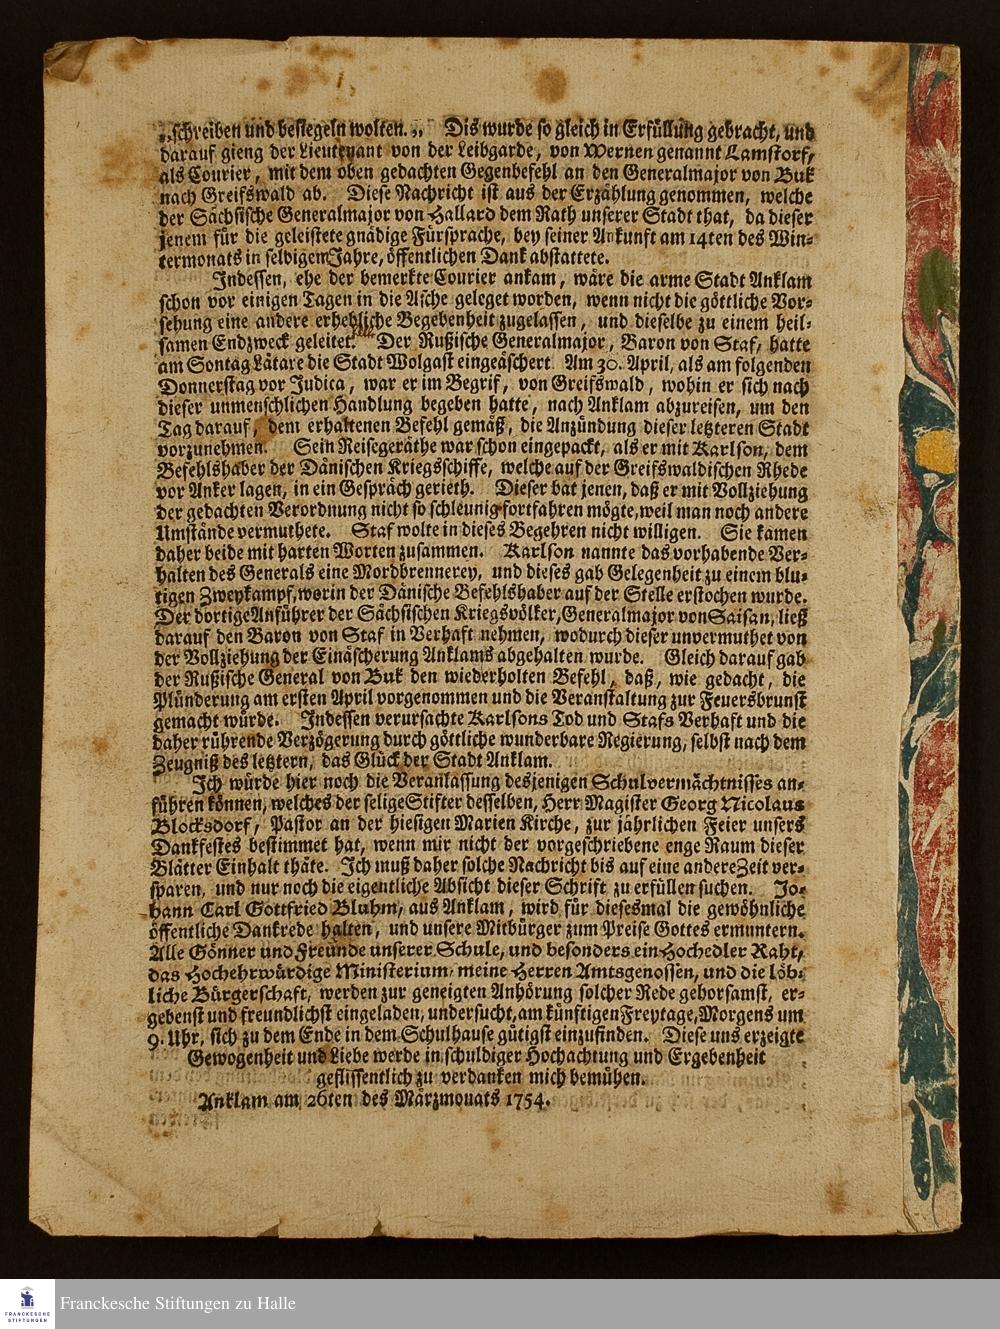 „schreiben und besiegeln wolten.„ Dis wurde so gleich in Erfüllung gebracht, und
darauf gieng der Lieutenant von der Leibgarde, von Wernen genannt Lamstorf,
als Courier, mit dem oben gedachten Gegenbefehl an den Generalmajor von Buk
nach Greifswald ab. Diese Nachricht ist aus der Erzählung genommen, welche
der Sächsische Generalmajor von Hallard dem Rath unserer Stadt that, da dieser
jenem für die geleistete gnädige Fürsprache, bey seiner Ankunft am 14ten des Win-
termonats in selbigem Jahre, öffentlichen Dank abstattete.
Indessen, ehe der bemerkte Courier ankam, wäre die arme Stadt Anklam
schon vor einigen Tagen in die Asche geleget worden, wenn nicht die göttliche Vor-
sehung eine andere erhebliche Begebenheit zugelassen, und dieselbe zu einem heil-
samen Endzweck geleitet. Der Rußische Generalmajor, Baron von Staf, hatte
am Sontag Lätare die Stadt Wolgast eingeäschert. Am 30. April, als am folgenden
Donnerstag vor Judica, war er im Begrif, von Greifswald, wohin er sich nach
dieser unmenschlichen Handlung begeben hatte, nach Anklam abzureisen, um den
Tag darauf, dem erhaltenen Befehl gemäß, die Anzündung dieser letzteren Stadt
vorzunehmen. Sein Reisegeräthe war schon eingepackt, als er mit Karlson, dem
Befehlshaber der Dänischen Kriegsschiffe, welche auf der Greifswaldischen Rhede
vor Anker lagen, in ein Gespräch gerieth. Dieser bat jenen, daß er mit Vollziehung
der gedachten Verordnung nicht so schleunig fortfahren mögte, weil man noch andere
Umstände vermuthete. Staf wolte in dieses Begehren nicht willigen. Sie kamen
daher beide mit harten Worten zusammen. Karlson nannte das vorhabende Ver-
halten des Generals eine Mordbrennerey, und dieses gab Gelegenheit zu einem blu-
tigen Zweykampf, worin der Dänische Befehlshaber auf der Stelle erstochen wurde.
Der dortige Anführer der Sächsischen Kriegsvölker, Generalmajor von Saisan, ließ
darauf den Baron von Staf in Verhaft nehmen, wodurch dieser unvermuthet von
der Vollziehung der Einäscherung Anklams abgehalten wurde. Gleich darauf gab
der Rußische General von Buk den wiederholten Befehl, daß, wie gedacht, die
Plünderung am ersten April vorgenommen und die Veranstaltung zur Feuersbrunst
gemacht würde. Indessen verursachte Karlsons Tod und Stafs Verhaft und die
daher rührende Verzögerung durch göttliche wunderbare Regierung, selbst nach dem
Zeugniß des letztern, das Glück der Stadt Anklam.
Ich würde hier noch die Veranlassung desjenigen Schulvermächtnisses an-
führen können, welches der selige Stifter desselben, Herr Magister Georg Nicolaus
Blocksdorf, Pastor an der hiesigen Marien Kirche, zur jährlichen Feier unsers
Dankfestes bestimmet hat, wenn mir nicht der vorgeschriebene enge Raum dieser
Blätter Einhalt thäte. Ich muß daher solche Nachricht bis auf eine andere Zeit ver-
sparen, und nur noch die eigentliche Absicht dieser Schrift zu erfüllen suchen. Jo-
hann Carl Gottfried Bluhm, aus Anklam, wird für diesesmal die gewöhnliche
öffentliche Dankrede halten, und unsere Mitbürger zum Preise Gottes ermuntern.
Alle Gönner und Freunde unserer Schule, und besonders ein Hochedler Raht,
das Hochehrwürdige Ministerium, meine Herren Amtsgenossen, und die löb-
liche Bürgerschaft, werden zur geneigten Anhörung solcher Rede gehorsamst, er-
gebenst und freundlichst eingeladen, und ersucht, am künftigen Freytage, Morgens um
9. Uhr, sich zu dem Ende in dem Schulhause gütigst einzufinden. Diese uns erzeigte
Gewogenheit und Liebe werde in schuldiger Hochachtung und Ergebenheit
geflissentlich zu verdanken mich bemühen.
Anklam am 26ten des Märzmonats 1754.
FRANCKESCHE
STIFTUNGEN
Franckesche Stiftungen zu Halle